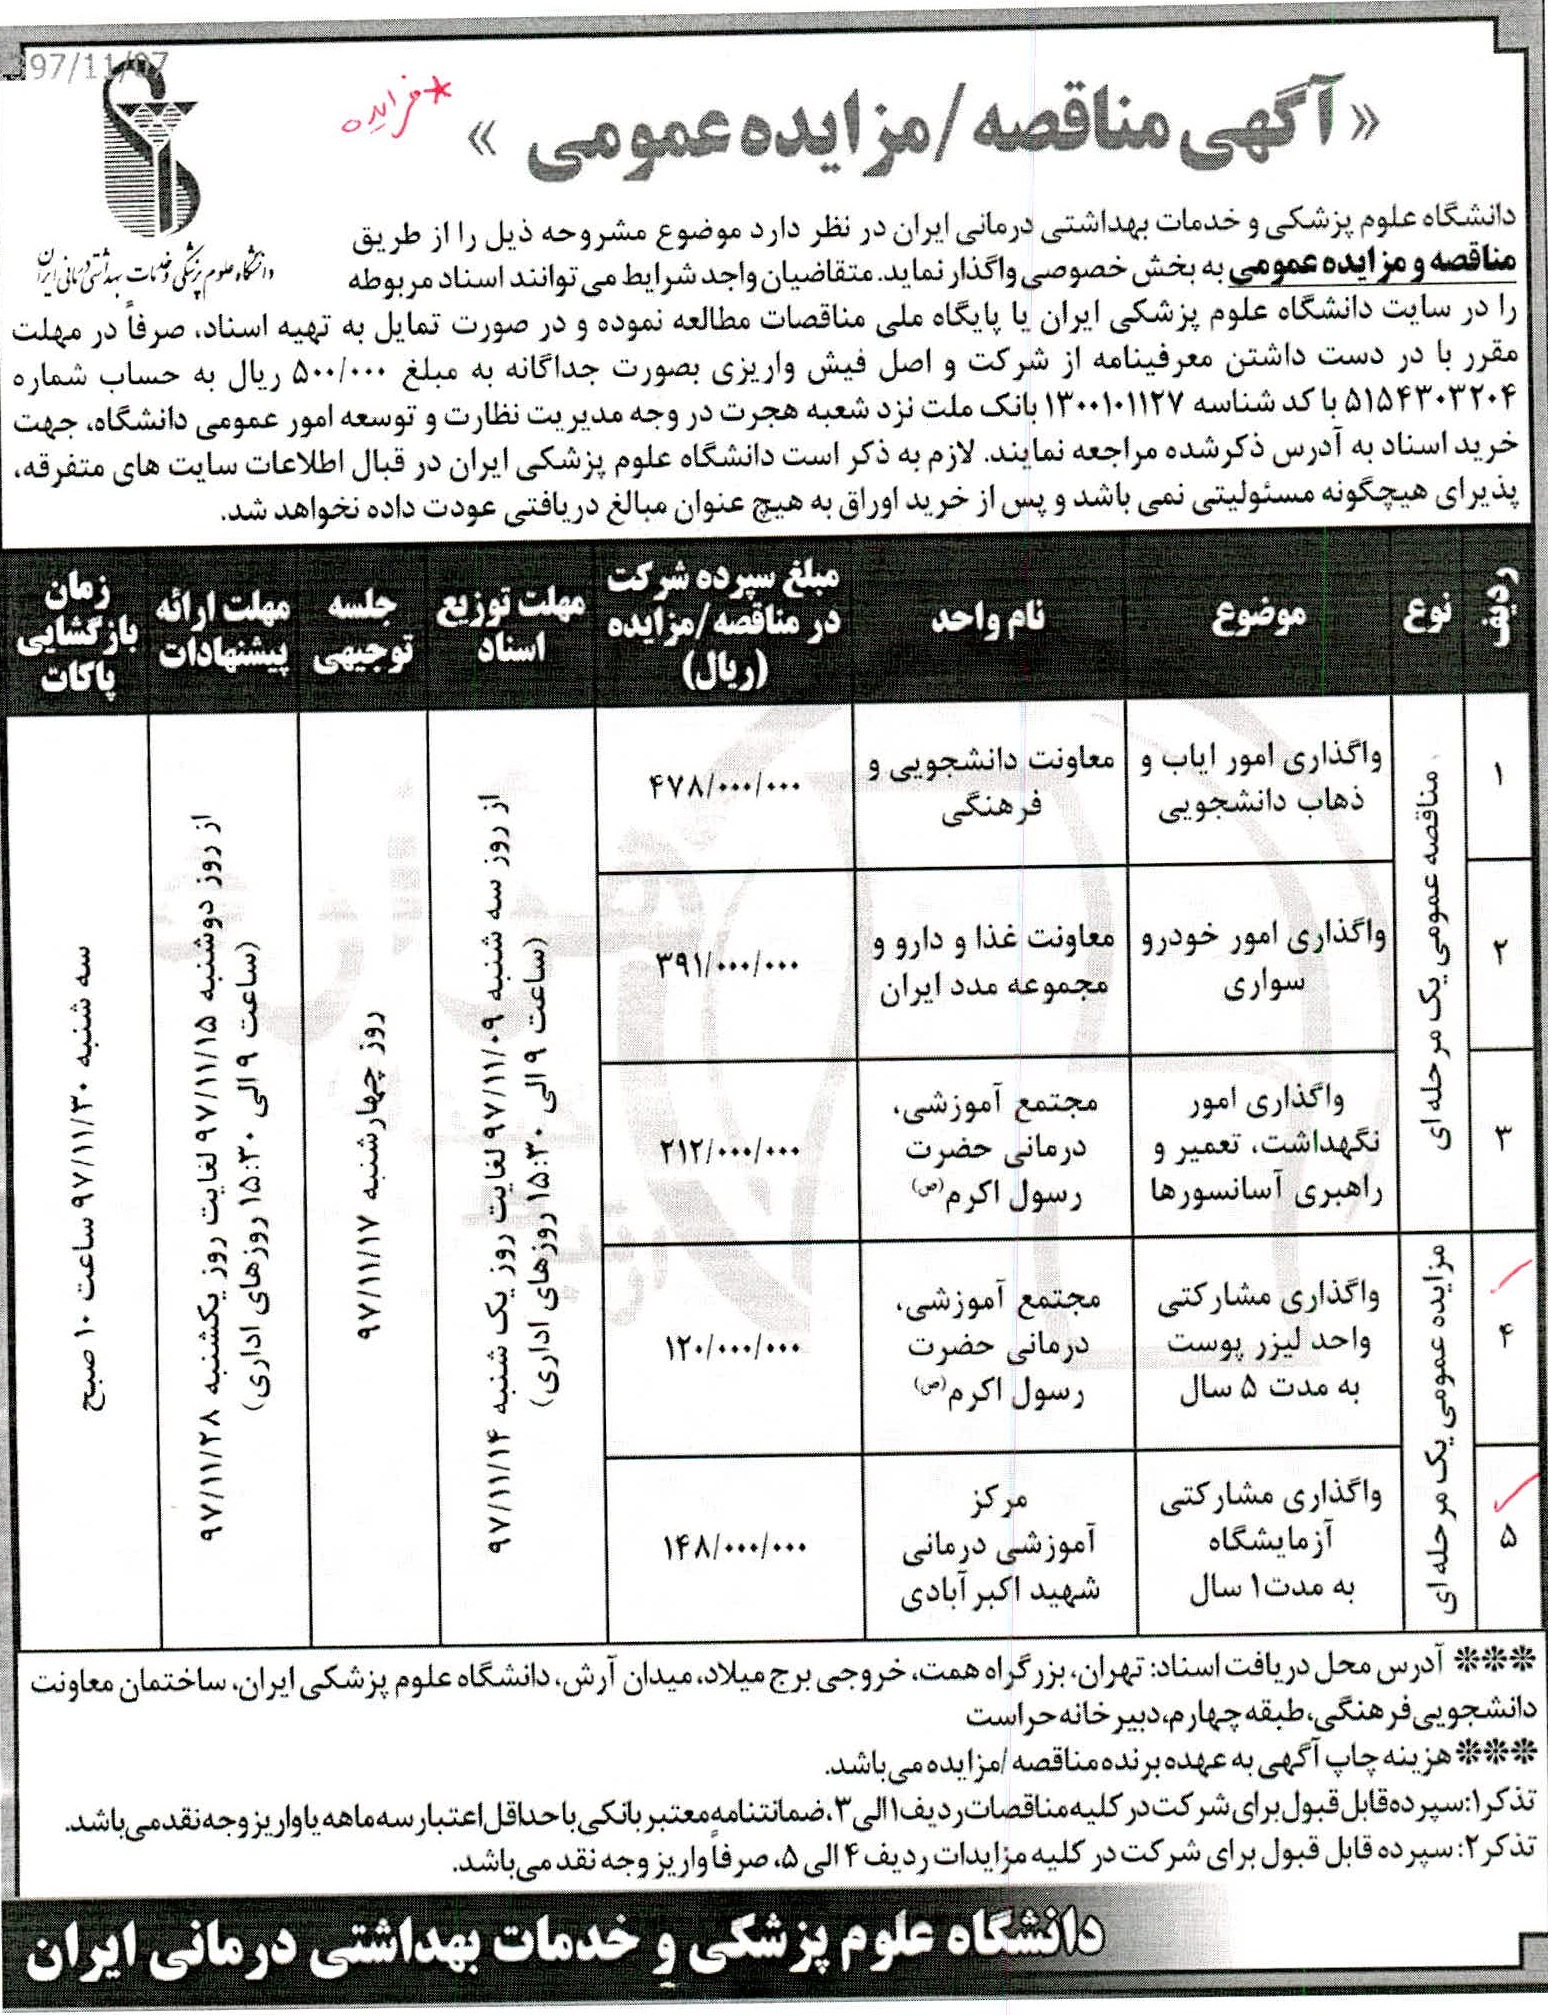 397/11/07
« آگهی مناقصه/مزایده عمومی »
دانشگاه علوم پزشکی و خدمات بهداشتی درمانی ایران
دانشگاه علوم پزشکی و خدمات بهداشتی درمانی ایران در نظر دارد موضوع مشروحه ذیل را از طریق
مناقصه و مزایده عمومی به بخش خصوصی واگذار نماید. متقاضیان واجد شرایط می توانند اسناد مربوطه
را در سایت دانشگاه علوم پزشکی ایران یا پایگاه ملی مناقصات مطالعه نموده و در صورت تمایل به تهیه اسناد، صرفاً در مهلت
مقرر با در دست داشتن معرفینامه از شرکت و اصل فیش واریزی بصورت جداگانه به مبلغ ۵۰۰/۰۰۰ ریال به حساب شماره
۵۱۵۴۳۰۳۲۰۴ با کد شناسه ۱۳۰۰۱۰۱۱۲۷ بانک ملت نزد شعبه هجرت در وجه مدیریت نظارت و توسعه امور عمومی دانشگاه، جهت
خرید اسناد به آدرس ذکرشده مراجعه نمایند. لازم به ذکر است دانشگاه علوم پزشکی ایران در قبال اطلاعات سایت های متفرقه،
پذیرای هیچگونه مسئولیتی نمی باشد و پس از خرید اوراق به هیچ عنوان مبالغ دریافتی عودت داده نخواهد شد.
ردیف
نوع
موضوع
نام واحد
مبلغ سپرده شرکت
در مناقصه/مزایده
(ریال)
مهلت توزیع
اسناد
جلسه
توجیهی
مهلت ارائه
پیشنهادات
زمان
بازگشایی
پاکات
۱
مناقصه عمومی یک مرحله ای
واگذاری امور ایاب و
ذهاب دانشجویی
معاونت دانشجویی و
فرهنگی
۴۷۸/۰۰۰/۰۰۰
از روز سه شنبه ۹۷/۱۱/۰۹ لغایت روز یک شنبه ۹۷/۱۱/۱۴
(ساعت ۹ الی ۱۵:۳۰ روزهای اداری)
روز چهارشنبه ۹۷/۱۱/۱۷
از روز دوشنبه ۹۷/۱۱/۱۵ لغایت روز یکشنبه ۹۷/۱۱/۲۸
(ساعت ۹ الی ۱۵:۳۰ روزهای اداری)
سه شنبه ۹۷/۱۱/۳۰ ساعت ۱۰ صبح
۲
واگذاری امور خودرو
سواری
معاونت غذا و دارو و
مجموعه مدد ایران
۳۹۱/۰۰۰/۰۰۰
۳
واگذاری امور
نگهداشت، تعمیر و
راهبری آسانسورها
مجتمع آموزشی،
درمانی حضرت
رسول اکرم (ص)
۲۱۲/۰۰۰/۰۰۰
۴
مزایده عمومی یک مرحله ای
واگذاری مشارکتی
واحد لیزر پوست
به مدت ۵ سال
مجتمع آموزشی،
درمانی حضرت
رسول اکرم (ص)
۱۲۰/۰۰۰/۰۰۰
۵
واگذاری مشارکتی
آزمایشگاه
به مدت ۱ سال
مرکز
آموزشی درمانی
شهید اکبر آبادی
۱۴۸/۰۰۰/۰۰۰
*** آدرس محل دریافت اسناد: تهران، بزرگراه همت، خروجی برج میلاد، میدان آرش، دانشگاه علوم پزشکی ایران، ساختمان معاونت
دانشجویی فرهنگی، طبقه چهارم، دبیرخانه حراست
*** هزینه چاپ آگهی به عهده برنده مناقصه/مزایده می باشد.
تذکر۱: سپرده قابل قبول برای شرکت در کلیه مناقصات ردیف ۱ الی ۳، ضمانتنامه معتبر بانکی با حداقل اعتبار سه ماهه یا واریز وجه نقد می باشد.
تذکر۲: سپرده قابل قبول برای شرکت در کلیه مزایدات ردیف ۴ الی ۵، صرفاً واریز وجه نقد می باشد.
دانشگاه علوم پزشکی و خدمات بهداشتی درمانی ایران